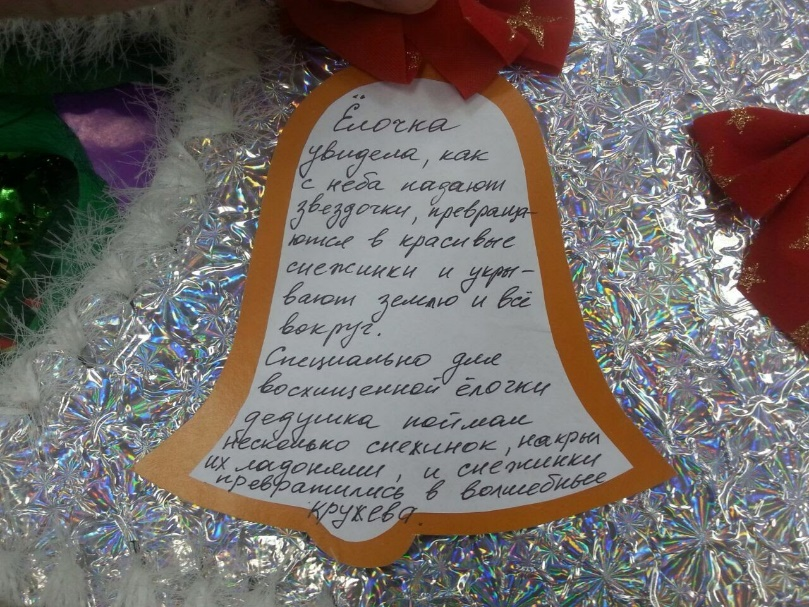 Ёлочка
увидела, как
с неба падают
звездочки, превраща-
ются в красивые
снежинки и укры-
вают землю и всё
вокруг.
Специально для
восхищенной ёлочки
дедушка поймал
несколько снежинок, накрыл
их ладонями, и снежинки
превратились в волшебные
кружева.